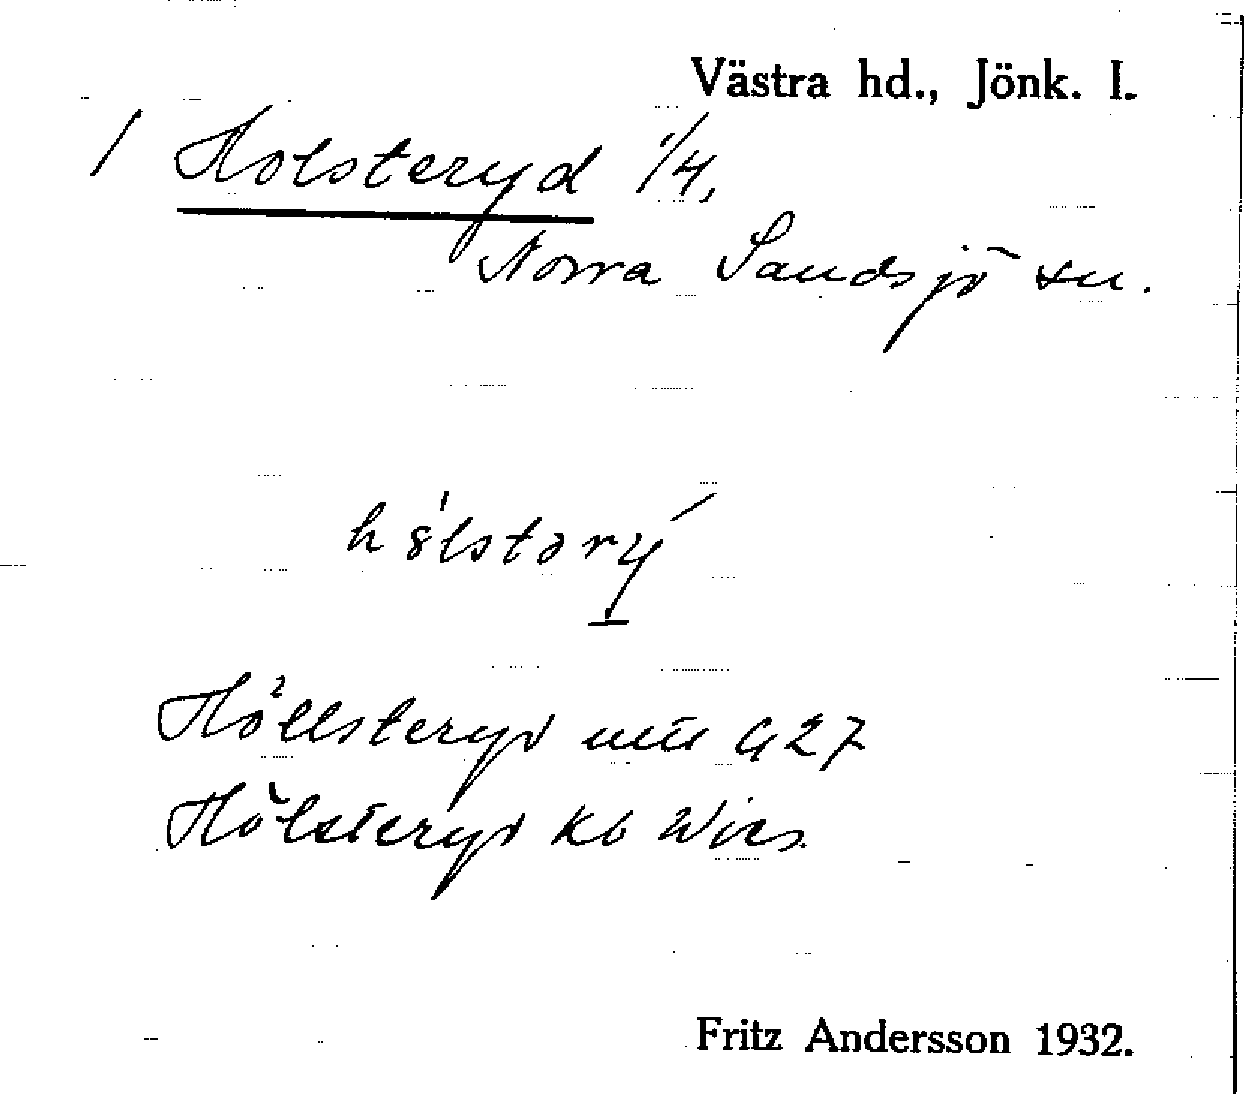 Västra hd., Jönk. l.
1 Holsteryd 1/4,
Norra Sandsjö sn.
hölstəry
Höllsteryd 427
Hölsteryd Kb Wies
Fritz Andersson 1932.